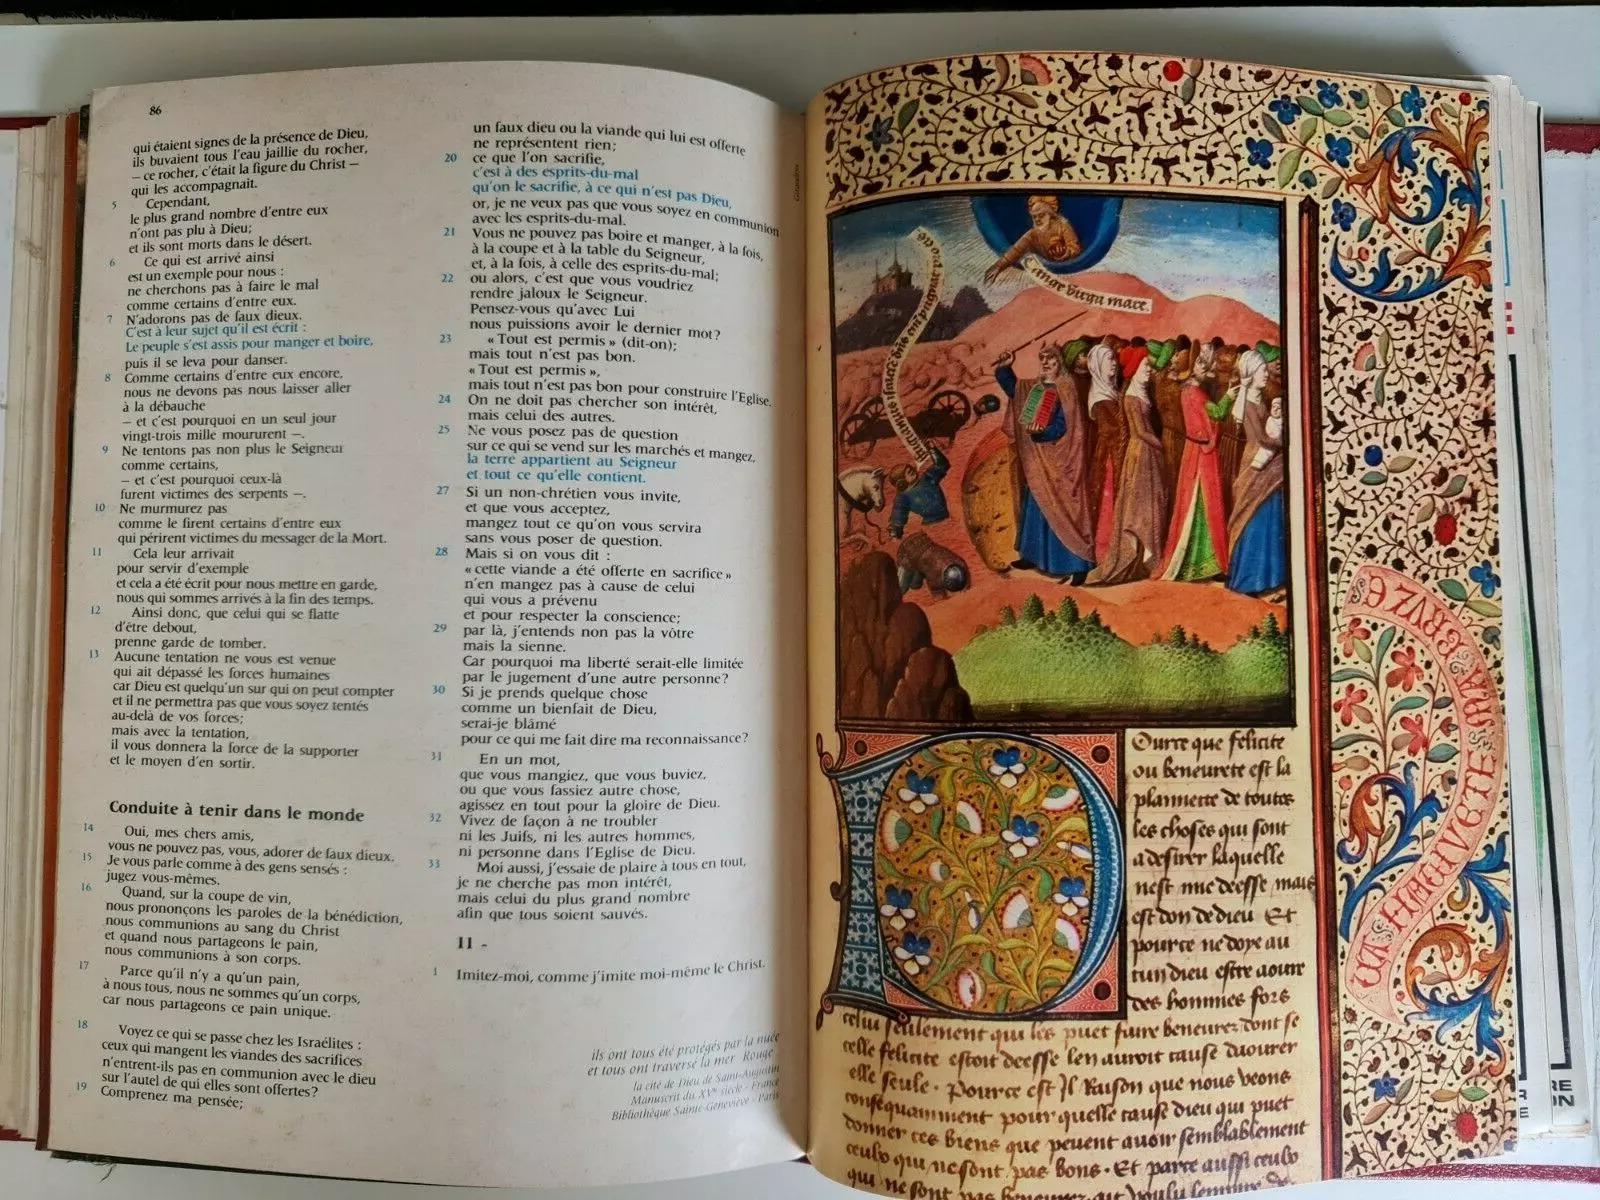 86
qui étaient signes de la présence de Dieu,
ils buvaient tous l'eau jaillie du rocher,
— ce rocher, c'était la figure du Christ —
qui les accompagnait.
5 Cependant,
le plus grand nombre d'entre eux
n'ont pas plu à Dieu;
et ils sont morts dans le désert.
6 Ce qui est arrivé ainsi
est un exemple pour nous :
ne cherchons pas à faire le mal
comme certains d'entre eux.
7 N'adorons pas de faux dieux.
C'est à leur sujet qu'il est écrit :
Le peuple s'est assis pour manger et boire,
puis il se leva pour danser.
8 Comme certains d'entre eux encore,
nous ne devons pas nous laisser aller
à la débauche
— et c'est pourquoi en un seul jour
vingt-trois mille moururent —.
9 Ne tentons pas non plus le Seigneur
comme certains,
— et c'est pourquoi ceux-là
furent victimes des serpents —.
10 Ne murmurez pas
comme le firent certains d'entre eux
qui périrent victimes du messager de la Mort.
11 Cela leur arrivait
pour servir d'exemple
et cela a été écrit pour nous mettre en garde,
nous qui sommes arrivés à la fin des temps.
12 Ainsi donc, que celui qui se flatte
d'être debout,
prenne garde de tomber.
13 Aucune tentation ne vous est venue
qui ait dépassé les forces humaines
car Dieu est quelqu'un sur qui on peut compter
et il ne permettra pas que vous soyez tentés
au-delà de vos forces;
mais avec la tentation,
il vous donnera la force de la supporter
et le moyen d'en sortir.
Conduite à tenir dans le monde
14 Oui, mes chers amis,
vous ne pouvez pas, vous, adorer de faux dieux.
15 Je vous parle comme à des gens sensés :
jugez vous-mêmes.
16 Quand, sur la coupe de vin,
nous prononçons les paroles de la bénédiction,
nous communions au sang du Christ
et quand nous partageons le pain,
nous communions à son corps.
17 Parce qu'il n'y a qu'un pain,
à nous tous, nous ne sommes qu'un corps,
car nous partageons ce pain unique.
18 Voyez ce qui se passe chez les Israélites :
ceux qui mangent les viandes des sacrifices
n'entrent-ils pas en communion avec le dieu
sur l'autel de qui elles sont offertes?
19 Comprenez ma pensée;
un faux dieu ou la viande qui lui est offerte
ne représentent rien;
20 ce que l'on sacrifie,
c'est à des esprits-du-mal
qu'on le sacrifie, à ce qui n'est pas Dieu,
or, je ne veux pas que vous soyez en communion
avec les esprits-du-mal.
21 Vous ne pouvez pas boire et manger, à la fois,
à la coupe et à la table du Seigneur,
et, à la fois, à celle des esprits-du-mal;
22 ou alors, c'est que vous voudriez
rendre jaloux le Seigneur.
Pensez-vous qu'avec Lui
nous puissions avoir le dernier mot?
23 « Tout est permis » (dit-on);
mais tout n'est pas bon.
« Tout est permis »,
mais tout n'est pas bon pour construire l'Eglise.
24 On ne doit pas chercher son intérêt,
mais celui des autres.
25 Ne vous posez pas de question
sur ce qui se vend sur les marchés et mangez,
la terre appartient au Seigneur
et tout ce qu'elle contient.
27 Si un non-chrétien vous invite,
et que vous acceptez,
mangez tout ce qu'on vous servira
sans vous poser de question.
28 Mais si on vous dit :
« cette viande a été offerte en sacrifice »
n'en mangez pas à cause de celui
qui vous a prévenu
et pour respecter la conscience;
29 par là, j'entends non pas la vôtre
mais la sienne.
Car pourquoi ma liberté serait-elle limitée
par le jugement d'une autre personne?
30 Si je prends quelque chose
comme un bienfait de Dieu,
serai-je blâmé
pour ce qui me fait dire ma reconnaissance?
31 En un mot,
que vous mangiez, que vous buviez,
ou que vous fassiez autre chose,
agissez en tout pour la gloire de Dieu.
32 Vivez de façon à ne troubler
ni les Juifs, ni les autres hommes,
ni personne dans l'Eglise de Dieu.
33 Moi aussi, j'essaie de plaire à tous en tout,
je ne cherche pas mon intérêt,
mais celui du plus grand nombre
afin que tous soient sauvés.
11 -
1 Imitez-moi, comme j'imite moi-même le Christ.
ils ont tous été protégés par la nuée
et tous ont traversé la mer Rouge
la cité de Dieu de Saint-Augustin
Manuscrit du XVe siècle - France
Bibliothèque Sainte-Geneviève - Paris
Giraudon
Tange virga mare.
Ource que felicite
ou beneurete est la
planniere de toutes
les choses qui sont
a desirer laquelle
nest mie deesse mais
est don de dieu Et
pource ne doye au
cun dieu estre aoure
des hommes fors
celui seulement qui les puet faire beneurez dont se
celle felicite estoit deesse len auroit cause daourer
elle seule. Pource est Il Raison que nous veons
consequamment pour quelle cause dieu qui puet
donner ces biens que peuent avoir semblablement
ceulx qui ne sont pas bons. Et parce aussi ceulx
qui ne sont pas beneurez ait voulu